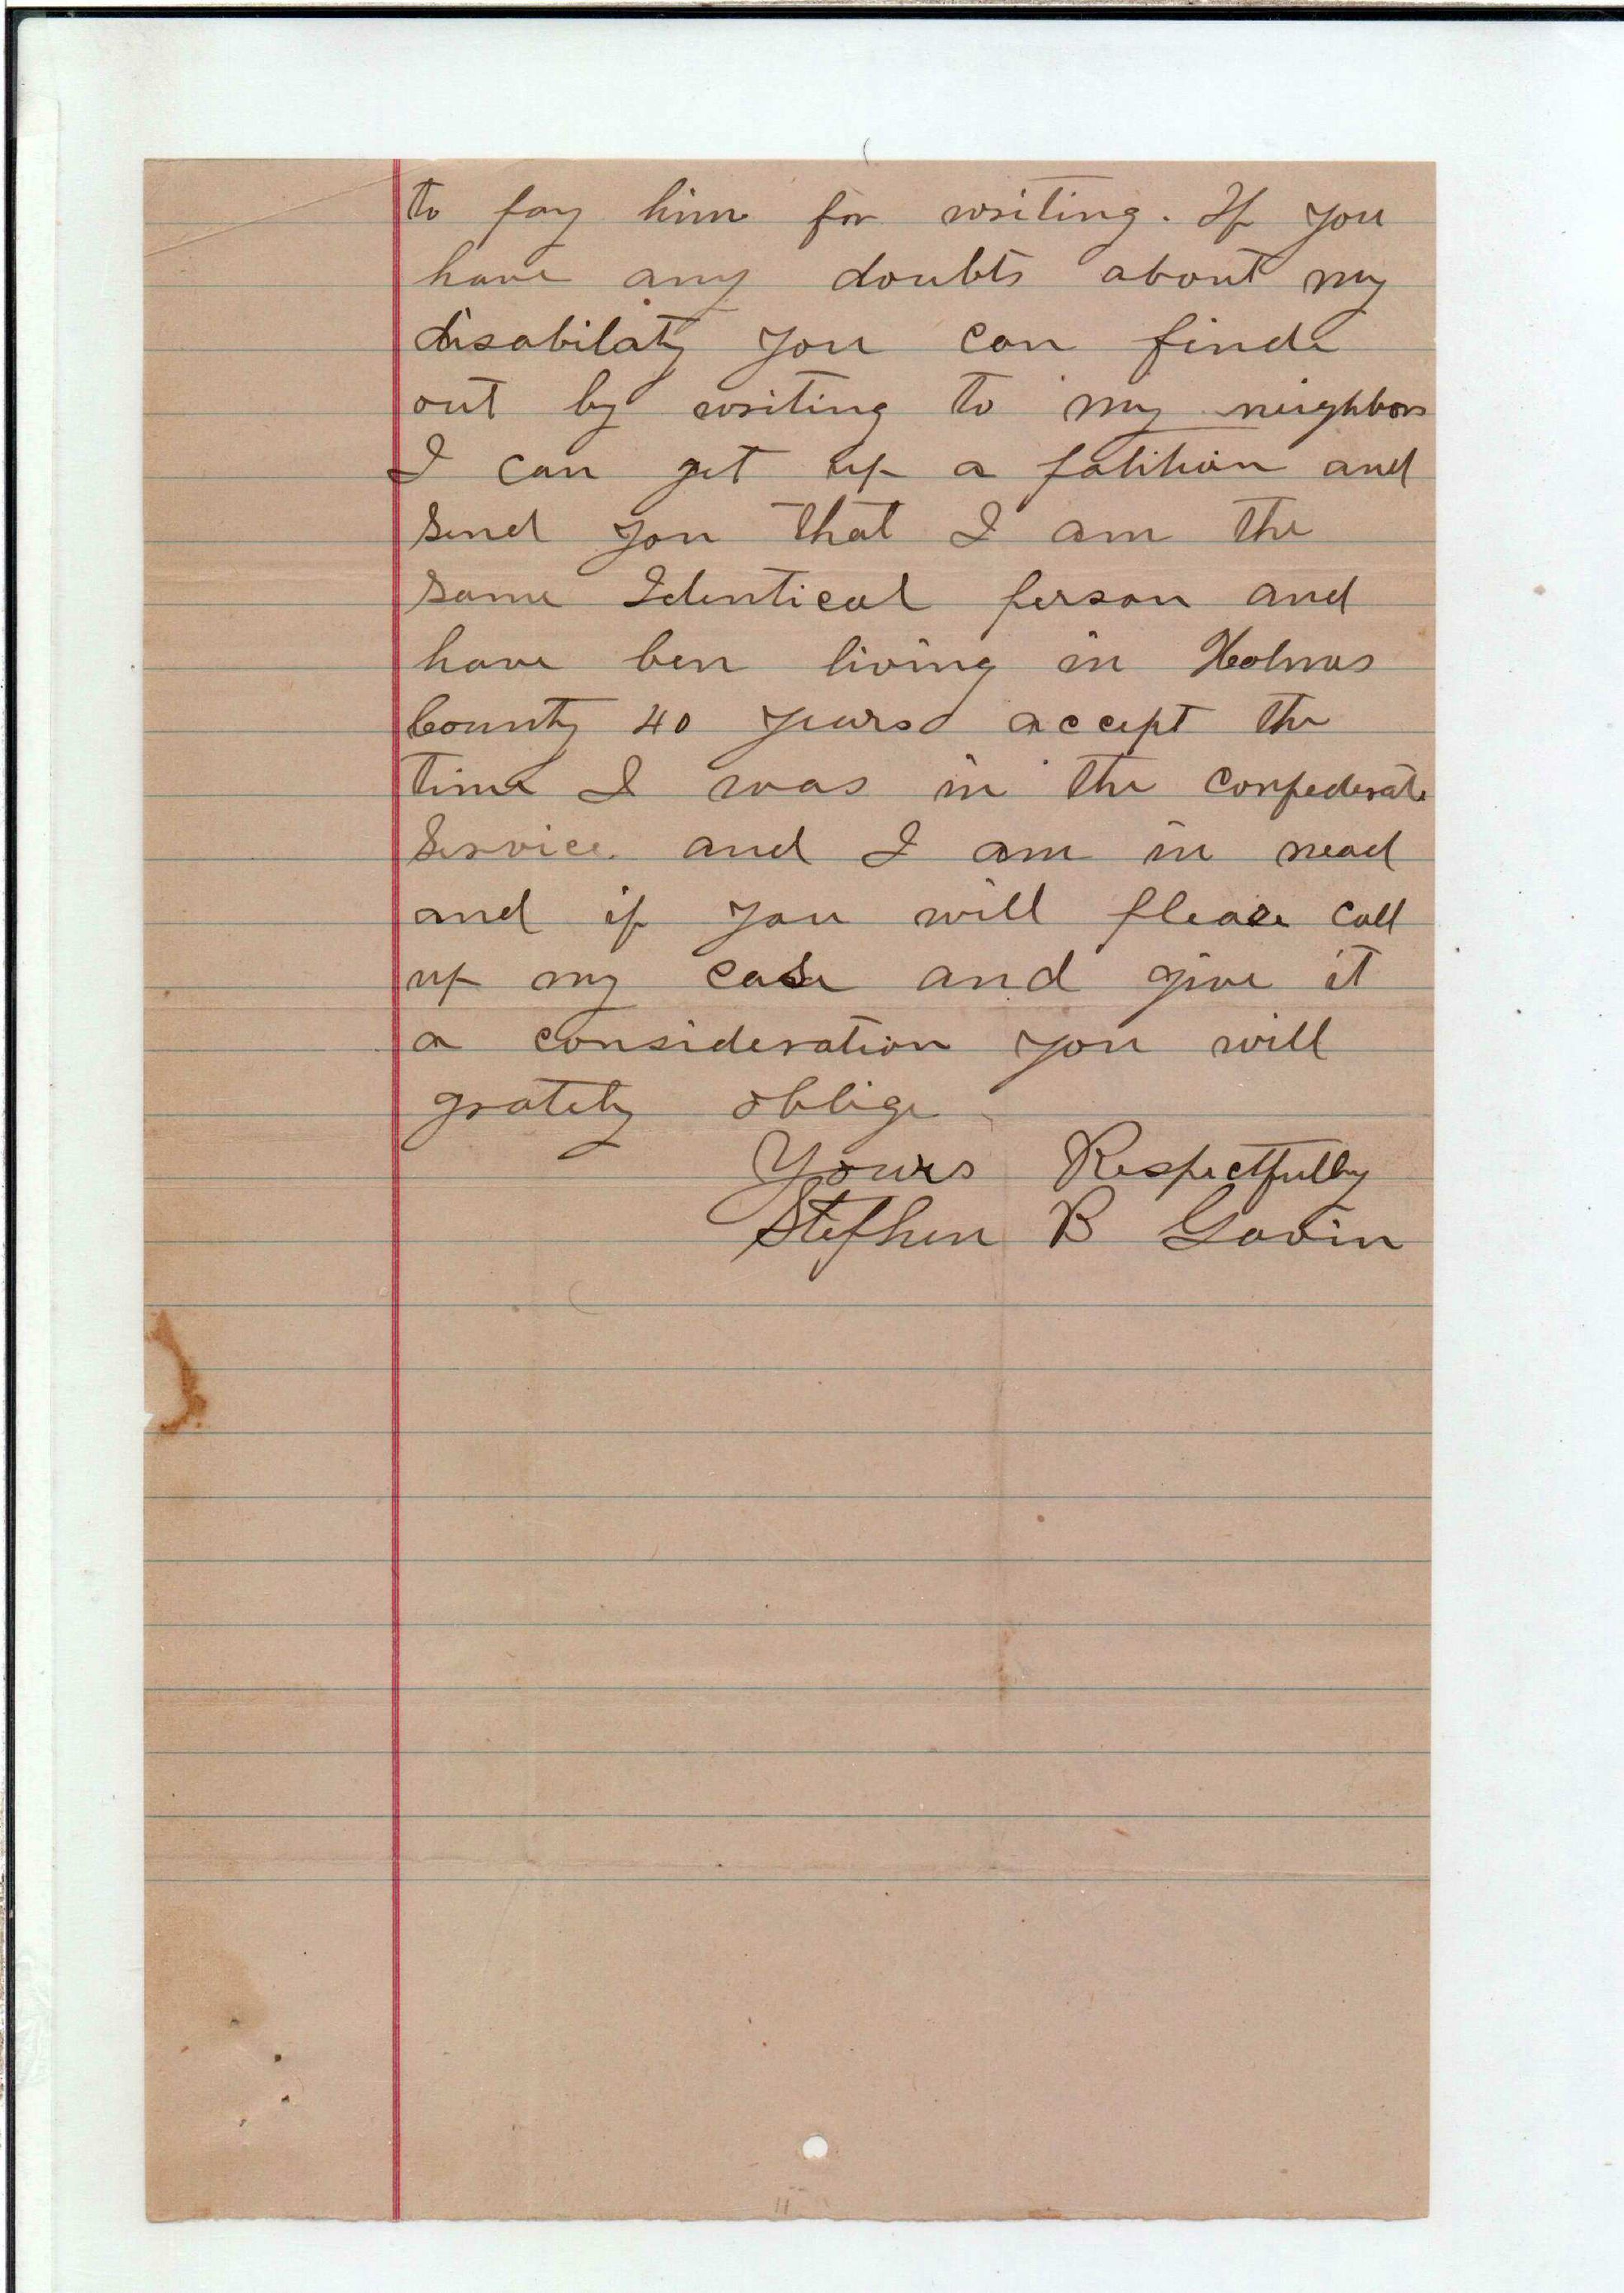 to pay him for writing. If you
have any doubts about my
disabilaty you can finde
out by writing to my neighbors
I can get up a patition and
send you that I am the
same Identical person and
have ben living in Holmes
County 40 years accept the
time I was in the confederate
Service. and I am in nead
and if you will please call
up my case and give it
a consideration you will
grately oblige
Yours Respectfully
Stephen B Gavin